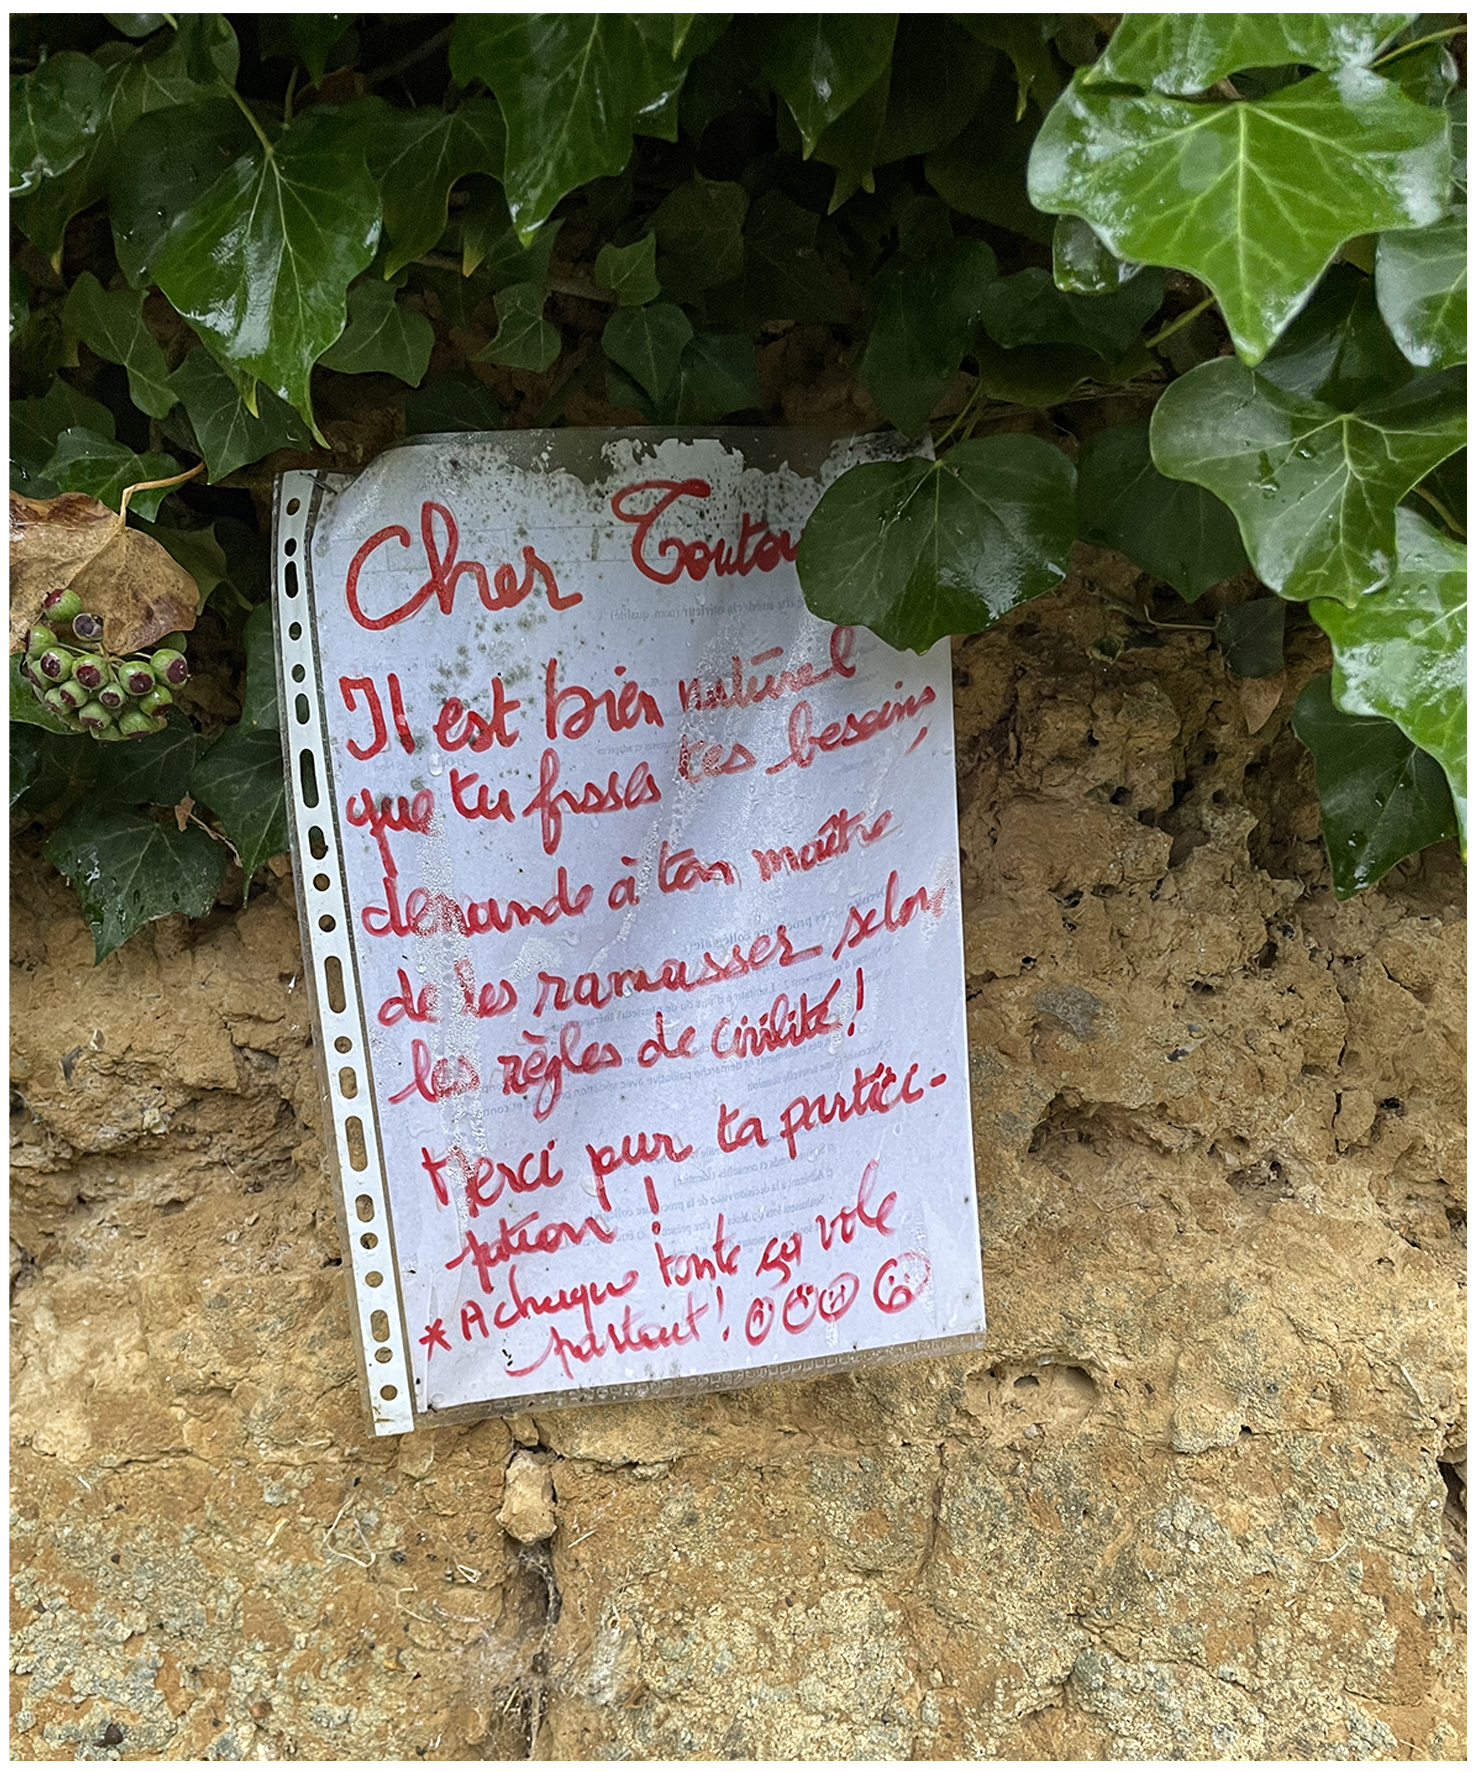 Cher Toutou
Il est bien naturel
que tu fasses tes besoins,
demande à ton maître
de les ramasser selon
les règles de civilité !
Merci pour ta partici-
pation !
* A chaque tonte ça vole
partout !